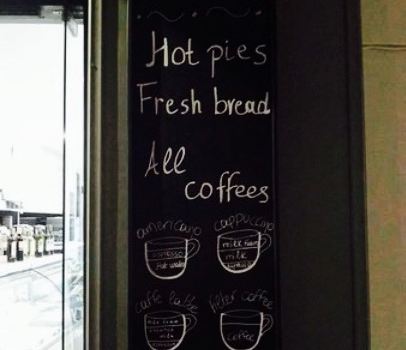 Hot pies
Fresh bread
All
coffees
americano cappuccino
espresso
Hot water
milk foam
milk
espresso
caffe latte filter coffee
milk foam
coffee